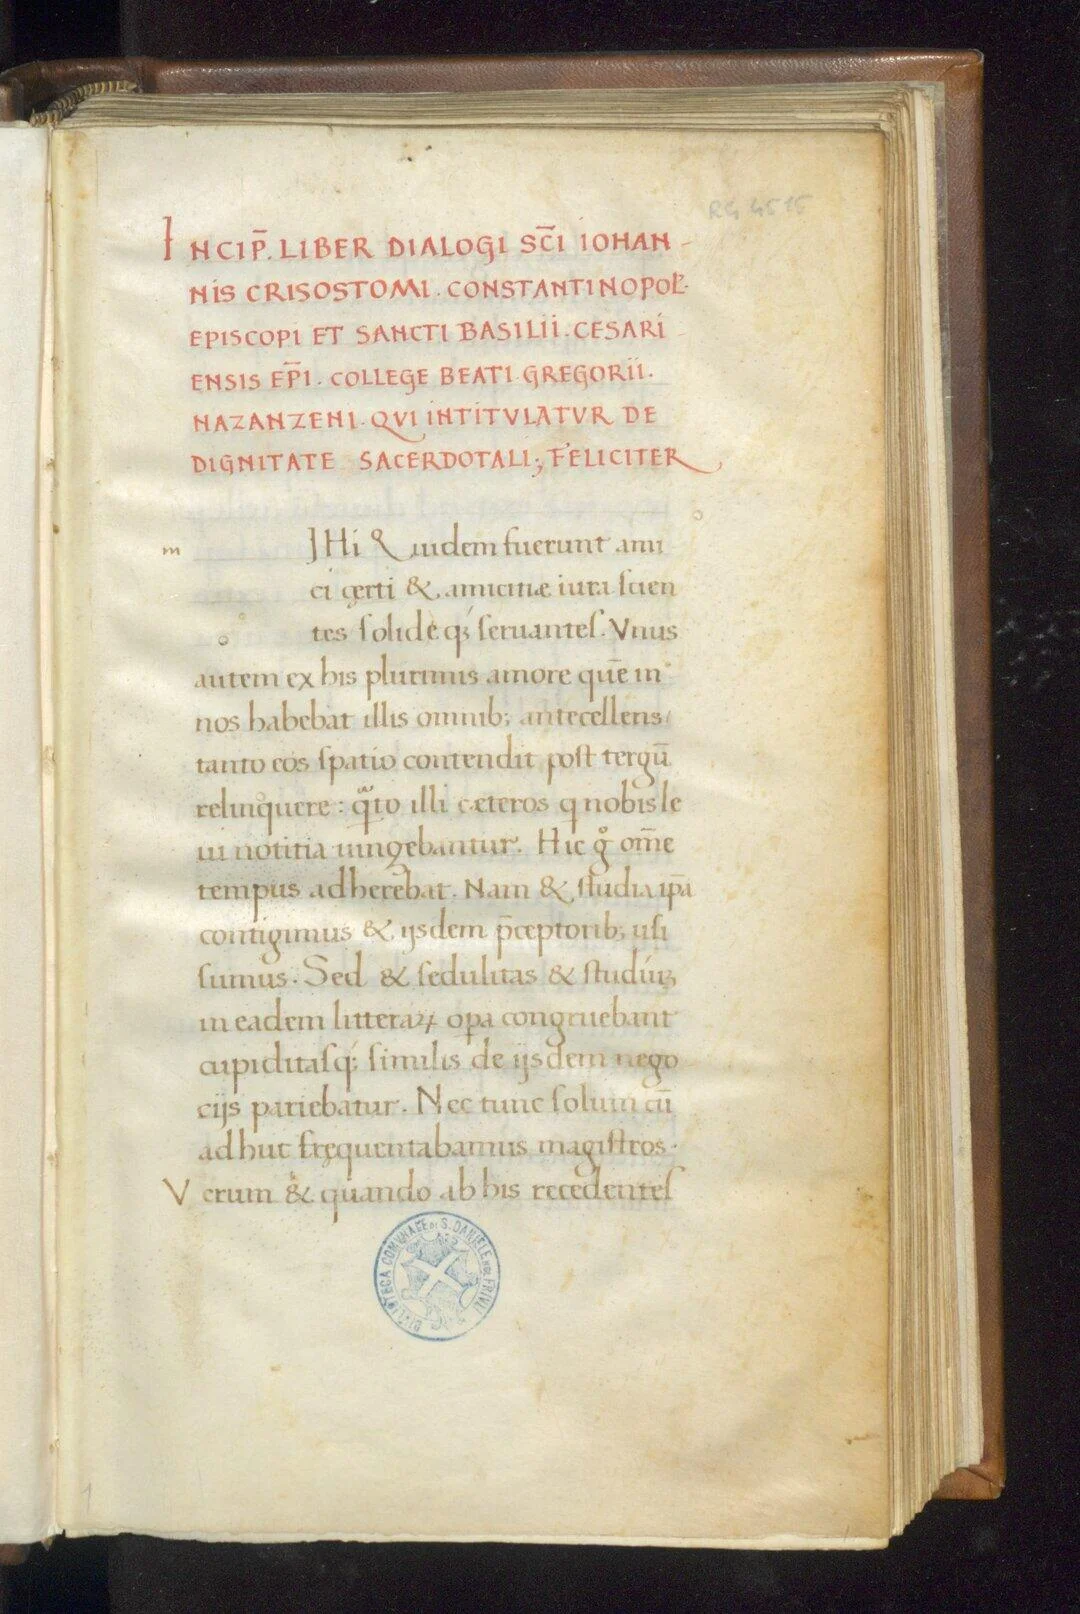 RG 4515
INCIP̄. LIBER DIALOGI SC̄I IOHAN-
NIS CRISOSTOMI. CONSTANTINOPOL̵.
EPISCOPI ET SANCTI BASILII. CESARI-
ENSIS EP̄I. COLLEGE BEATI GREGORII.
NAZANZENI. QVI INTITVLATVR DE
DIGNITATE SACERDOTALI; FELICITER
m
IHi Quidem fuerunt ami
ci çerti & amicitiæ iura ſcien
tes ſolide qꝫ ſeruanteſ. Vnus
autem ex his plurimis amore quē in
nos habebat illis omnib; antecellens/
tanto eos ſpatio contendit poſt tergū
relinquere: qᵃto illi cæteros q nobis le
ui notitia iungebantur. Hic gͦ om̄e
tempus adherebat. Nam & ſtudia ip̄a
contigimus & ijsdem p̄ceptorib; uſi
ſumus. Sed & ſedulitas & ſtudíuꝫ
in eadem litteraꝝ oꝑa congruebant
cupiditaſqꝫ ſimilis de ijsdem nego
cijs pariebatur. Nec tunc ſolum cū
adhuc fręquentabamus magiſtros.
Verum & quando ab his recedenteſ
BIBLIOTECA COMUNALE DI S. DANIELE NEL FRIULI
1